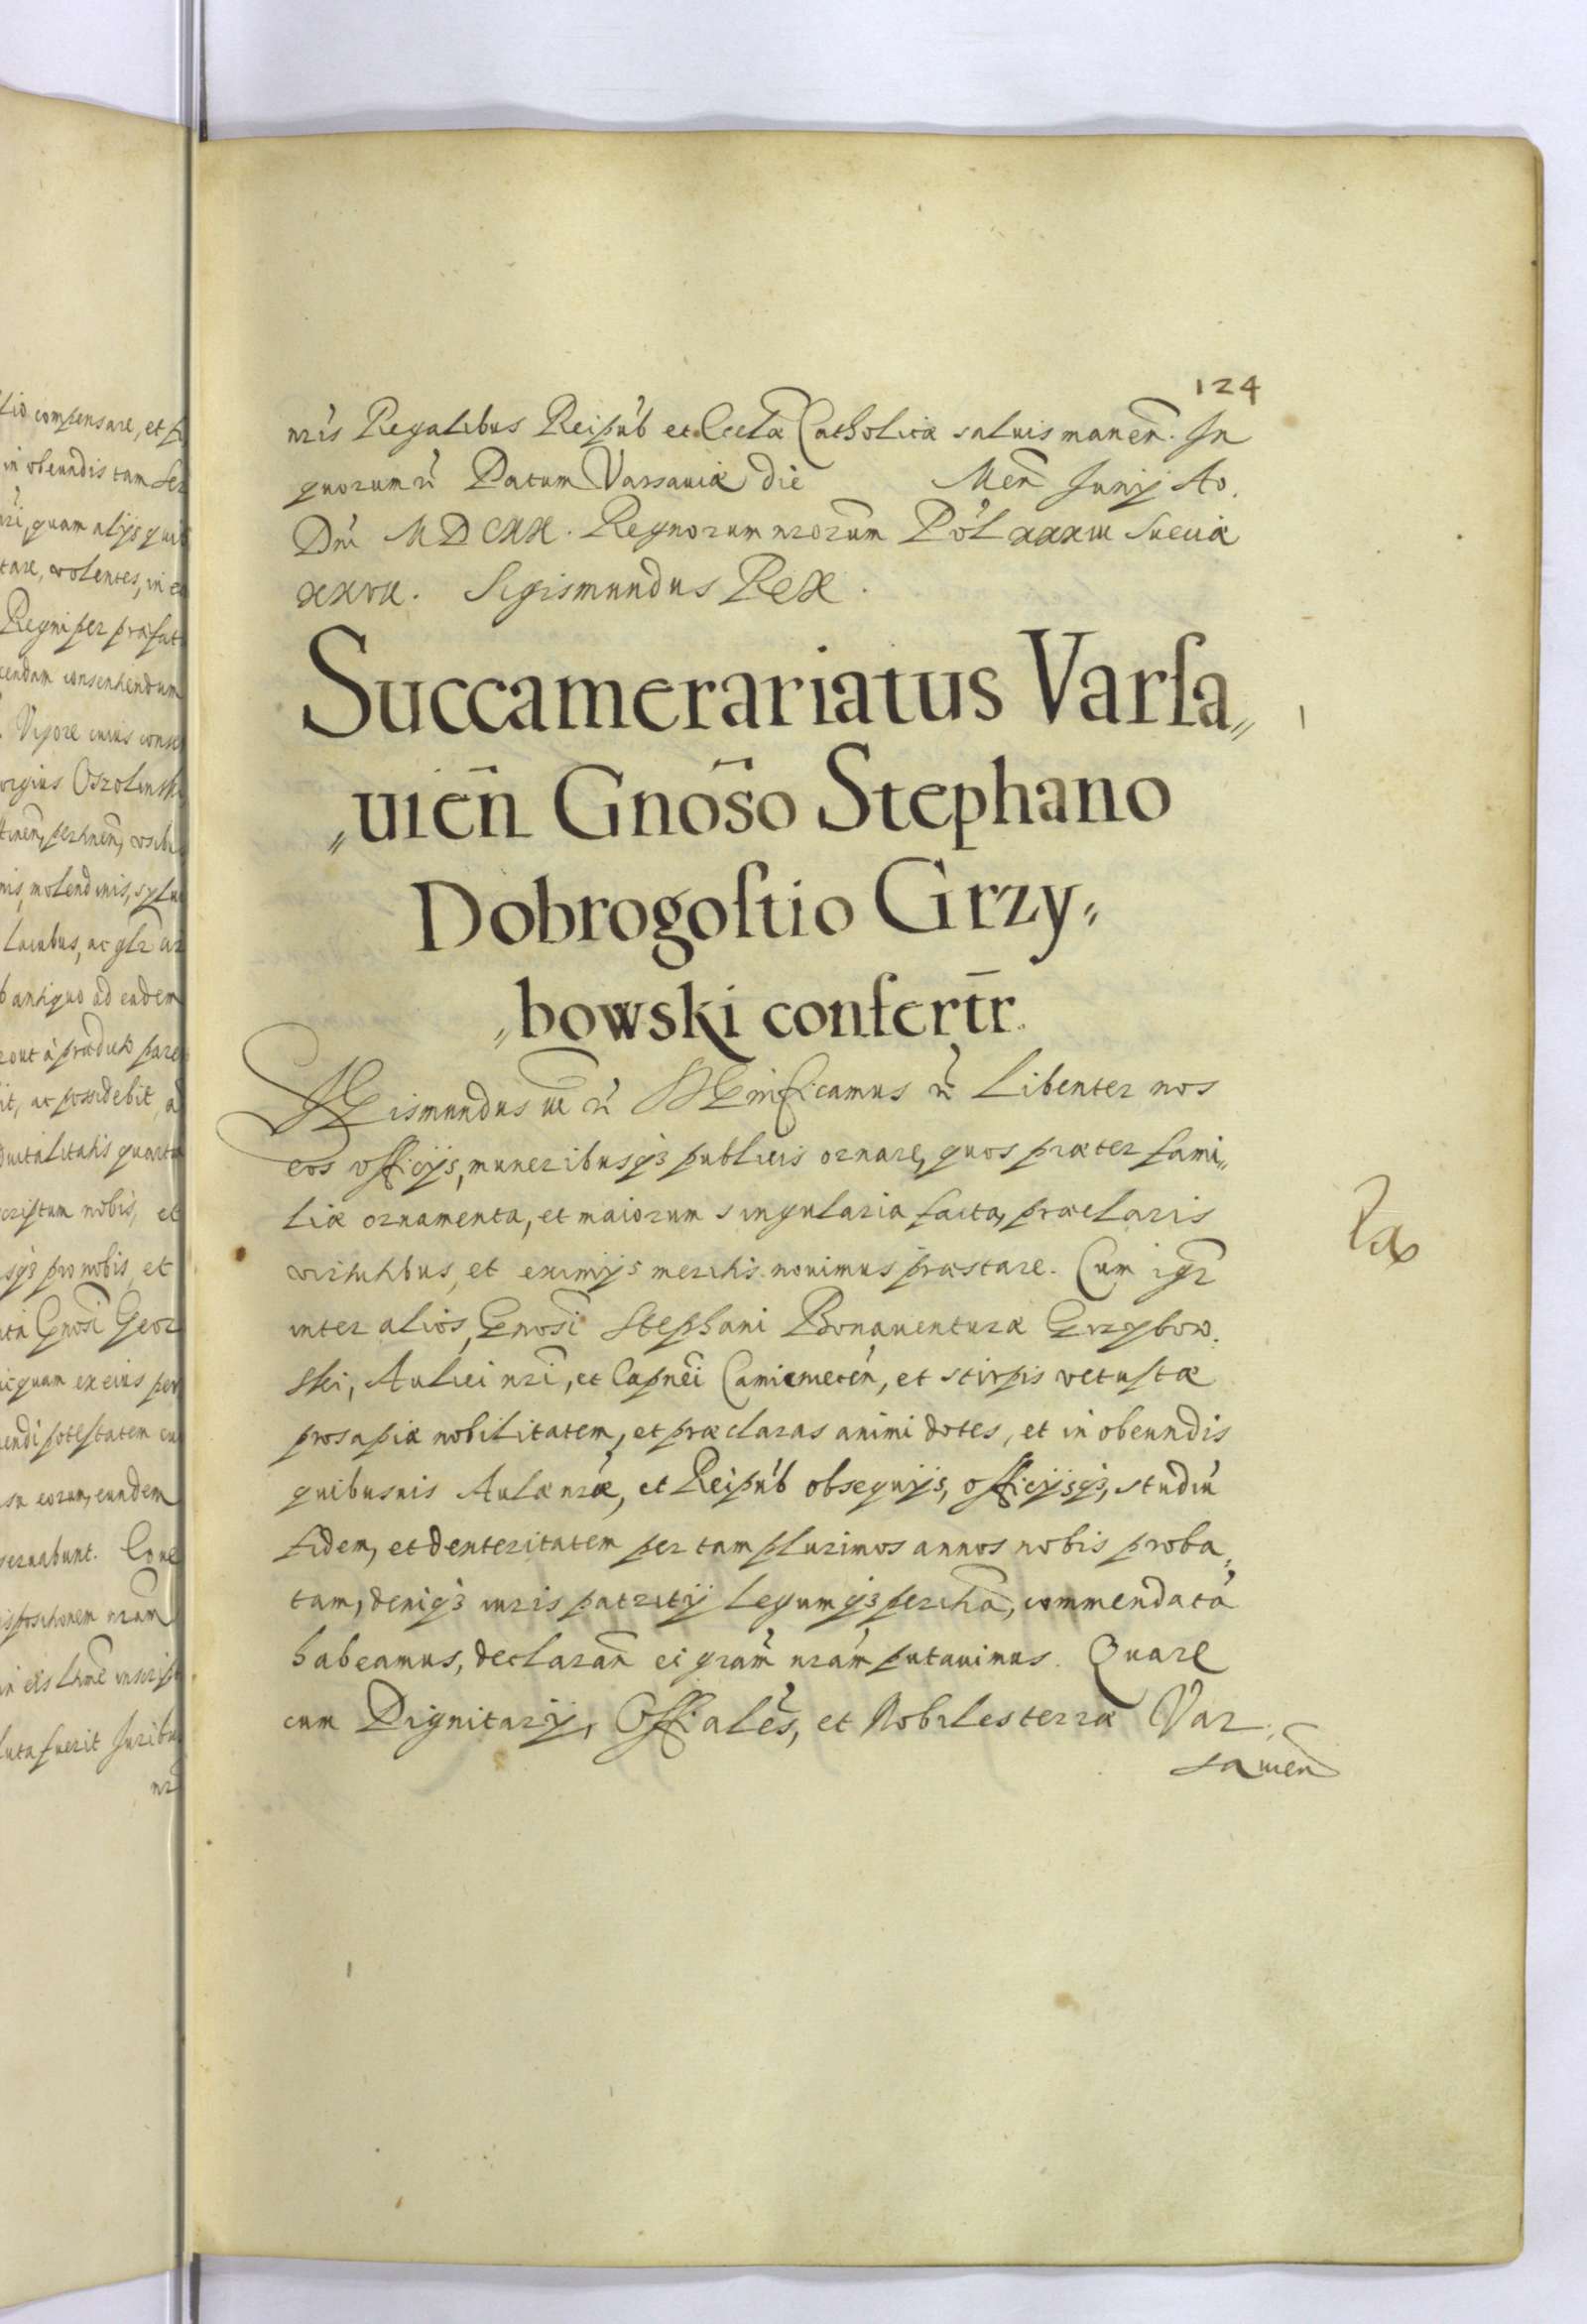 124
nr̃is Regalibus Reipub́ et Eccłæ Catholicæ saluis maneñ. In
quorum rꝛ̃ Datum Varsauiæ die Meñ Junij Ao.
Dñi MDCXX. Regnorum nrorum Pol xxxiii Sueciæ
xxvii. Sigismundus Rex.
Succamerariatus Varſa„
„uieñ Gnoso Stephano
Dobrogoſtio Grzy„
„bowski confert̃r.
Sigismundus III rꝛ̃ Significamus rꝛ̃ Libenter nos
eos officijs, muneribusqꝫ publicis ornare, quos præter fami„
liæ ornamenta, et maiorum singularia facta, præclaris
virtutibus, et eximijs meritis nouimus præstare. Cum igr̃
inter alios, Gnosi Stephani Bonauenturæ Grzybow.
ski, Aulici nr̃i, et Capnei Camieneceń, et stirpis vetustæ
prosapiæ nobilitatem, et præclaras animi dotes, et in obeundis
quibusuis Aulæ nr̃æ, et Reipub́ obsequijs, officijsqꝫ, studiũ
fidem, et dexteritatem per tam plurimos annos nobis proba„
tam, deniqꝫ iuris patrij Legumqꝫ peritiã, commendatã
habeamus, declarañ ei gram̃ nram̃ putauimus. Quare
cum Dignitarij, Offiales̃, et Nobiles terræ Var„
sauieñ
lio compensare, et
in obeundis tam
nr̃i, quam alijs
volentes, in
Regni per
consentiendum
Vigore cuius
Ossolins
molendinis,
Lacubus, ac glr̃
antiquo ad eadem
ac possidebit,
nobis, et
pro nobis, et
Gnosi Geor
quam ex eius
potestatem
eorum, eundem
nram̃
fuerit Juribus
nr̃